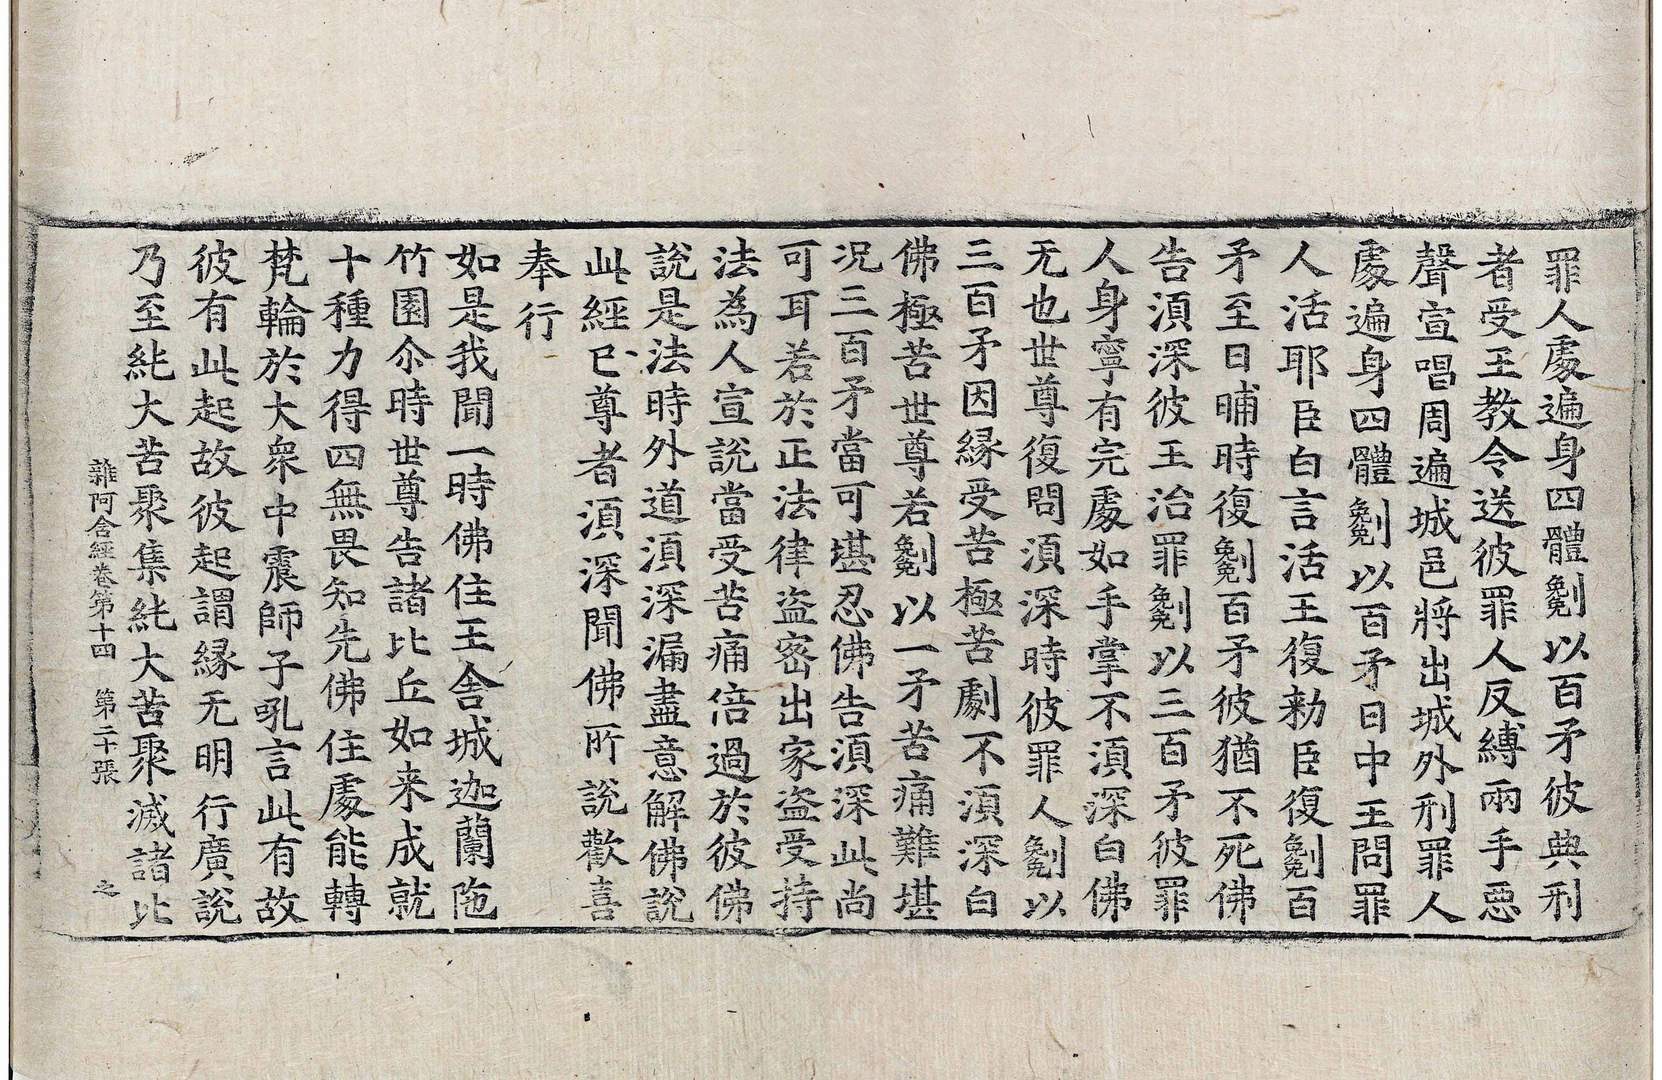 罪人處遍身四體劖以百矛彼典刑
者受王教令送彼罪人反縛兩手惡
聲宣唱周遍城邑將出城外刑罪人
處遍身四體劖以百矛日中王問罪
人活耶臣白言活王復勑臣復劖百
矛至日晡時復劖百矛彼猶不死佛
告湏深彼王治罪劖以三百矛彼罪
人身寧有完處如手掌不湏深白佛
无也世尊復問湏深時彼罪人劖以
三百矛因縁受苦極苦劇不湏深白
佛極苦世尊若劖以一矛苦痛難堪
况三百矛當可堪忍佛告湏深此尚
可耳若於正法律盗密出家盗受持
法為人宣説當受苦痛倍過於彼佛
説是法時外道湏深漏盡意解佛説
此經已尊者湏深聞佛所説歡喜
奉行
如是我聞一時佛住王舎城迦蘭陁
竹園尒時世尊告諸比丘如来成就
十種力得四無畏知先佛住處能轉
梵輪於大衆中震師子吼言此有故
彼有此起故彼起謂縁无明行廣説
乃至純大苦聚集純大苦聚滅諸比
雜阿含經卷第十四 第二十張 之